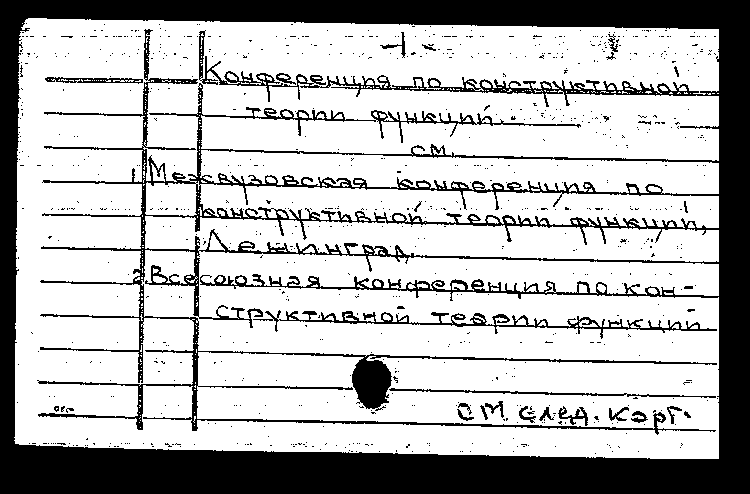 -1-
Конференция по конструктивной
теории функций
см.
1. Межвузовская конференция по
конструктивной теории функций,
Ленинград.
2. Всесоюзная конференция по кон-
структивной теории функций
см. след. карт.